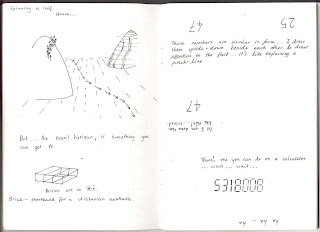 Spinning a loaf.
Hmmm...
But... the event horizon, is something you
can get to.
Bricks are to
Brick - shorthand for a utilitarian aesthetic
47
25
These numbers are similar in form... I draw
them upside-down beside each other to draw
attention to the fact... it's like explaining a
punch-line
47
There's one you can do on a calculator
... wait... wait...
5318008
ha ha — ha